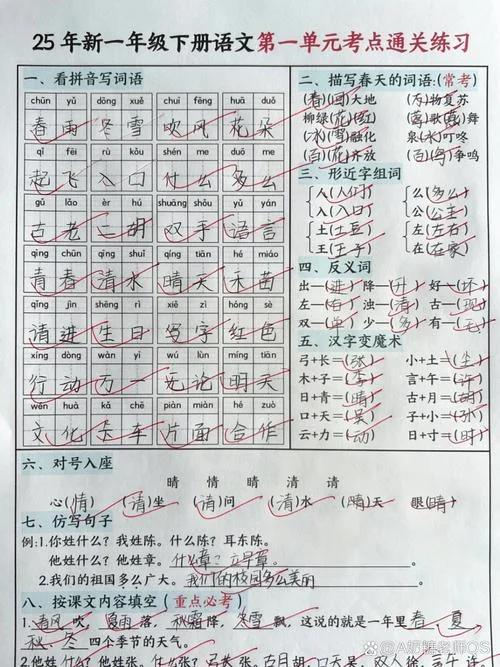 25年新一年级下册语文第一单元考点通关练习
一、看拼音写词语
chūn yǔ dōng xuě chuī fēng huā duǒ
春雨 冬雪 吹风 花朵
qǐ fēi rù kǒu shén me duō me
起飞 入口 什么 多么
gǔ lǎo èr hú shuāng shǒu yǔ yán
古老 二胡 双手 语言
qīng chūn qīng shuǐ qíng tiān hé miáo
青春 清水 晴天 禾苗
qǐng jìn shēng rì xiě zì hóng sè
请进 生日 写字 红色
xíng dòng wàn yī wú lùn míng tiān
行动 万一 无论 明天
wén huà kǎ chē piàn miàn hé zuò
文化 卡车 片面 合作
二、描写春天的词语:(常考)
(春)(回)大地 (万)物复苏
柳绿(花)(红) (莺)歌(燕)舞
(冰)(雪)融化 泉(水)叮咚
(百)(花)齐放 (百)(鸟)争鸣
三、形近字组词
人(人们) 公(多么)
入(入口) 公(公主)
土(土豆) 左(左右)
王(王子) 在(在家)
四、反义词
出—(进) 降—(升) 好—(坏)
左—(右) 浊—(清) 古—(现)
双—(单) 少—(多) 有—(无)
五、汉字变魔术
弓+长=(张) 小+土=(尘)
木+子=(李) 言+午=(许)
日+青=(晴) 古+月=(胡)
口+天=(吴) 子+小=(孙)
云+力=(动) 日+寸=(时)
六、对号入座
晴 情 睛 清 请
心(情) (请)坐 (请)问 (清)水 (晴)天 眼(睛)
七、仿写句子
例:1.你姓什么? 我姓陈。什么陈? 耳东陈。
他姓什么? 他姓章。什么章? 立早章。
2.我们的祖国多么广大。我们的校园多么美丽
八、按课文内容填空(重点必考)
1.春风吹,夏雨落,秋霜降,冬雪飘,这说的就是一年里春、夏
秋、冬四个季节的天气。
@A奶糖老师QS